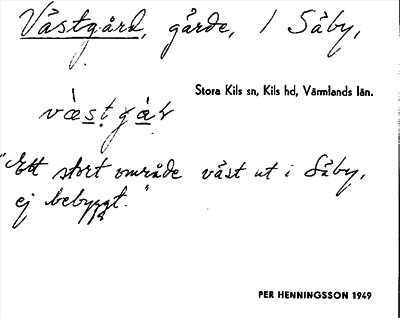 Västgård, gärde, i Såby,
Stora Kils sn, Kils hd, Värmlands län.
væ̀stgàṛ
"Ett stort område väst ut i Såby,
ej bebyggt."
PER HENNINGSSON 1949